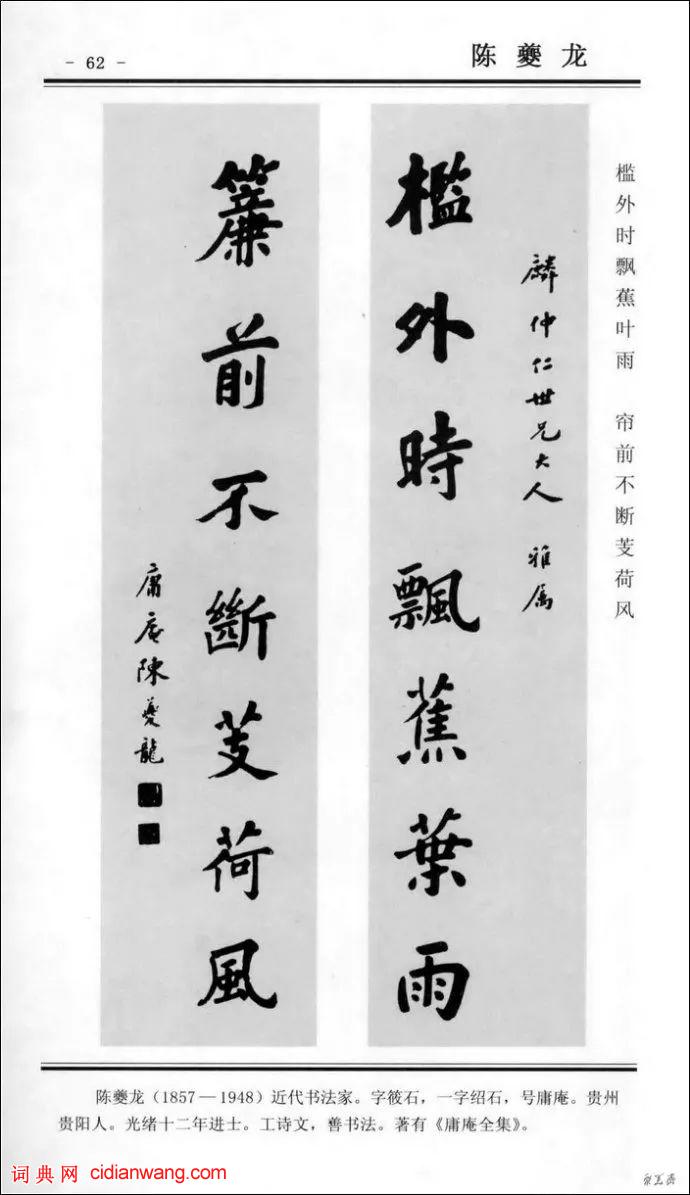 - 62 -
陈夔龙
槛外时飘蕉叶雨 帘前不断芰荷风
麟仲仁世兄大人 雅属
檻外時飄蕉葉雨
簾前不斷芰荷風
庸庵陳夔龍
陈夔龙（1857—1948）近代书法家。字筱石，一字绍石，号庸庵。贵州
贵阳人。光绪十二年进士。工诗文，善书法。著有《庸庵全集》。
词典网 cidianwang.com